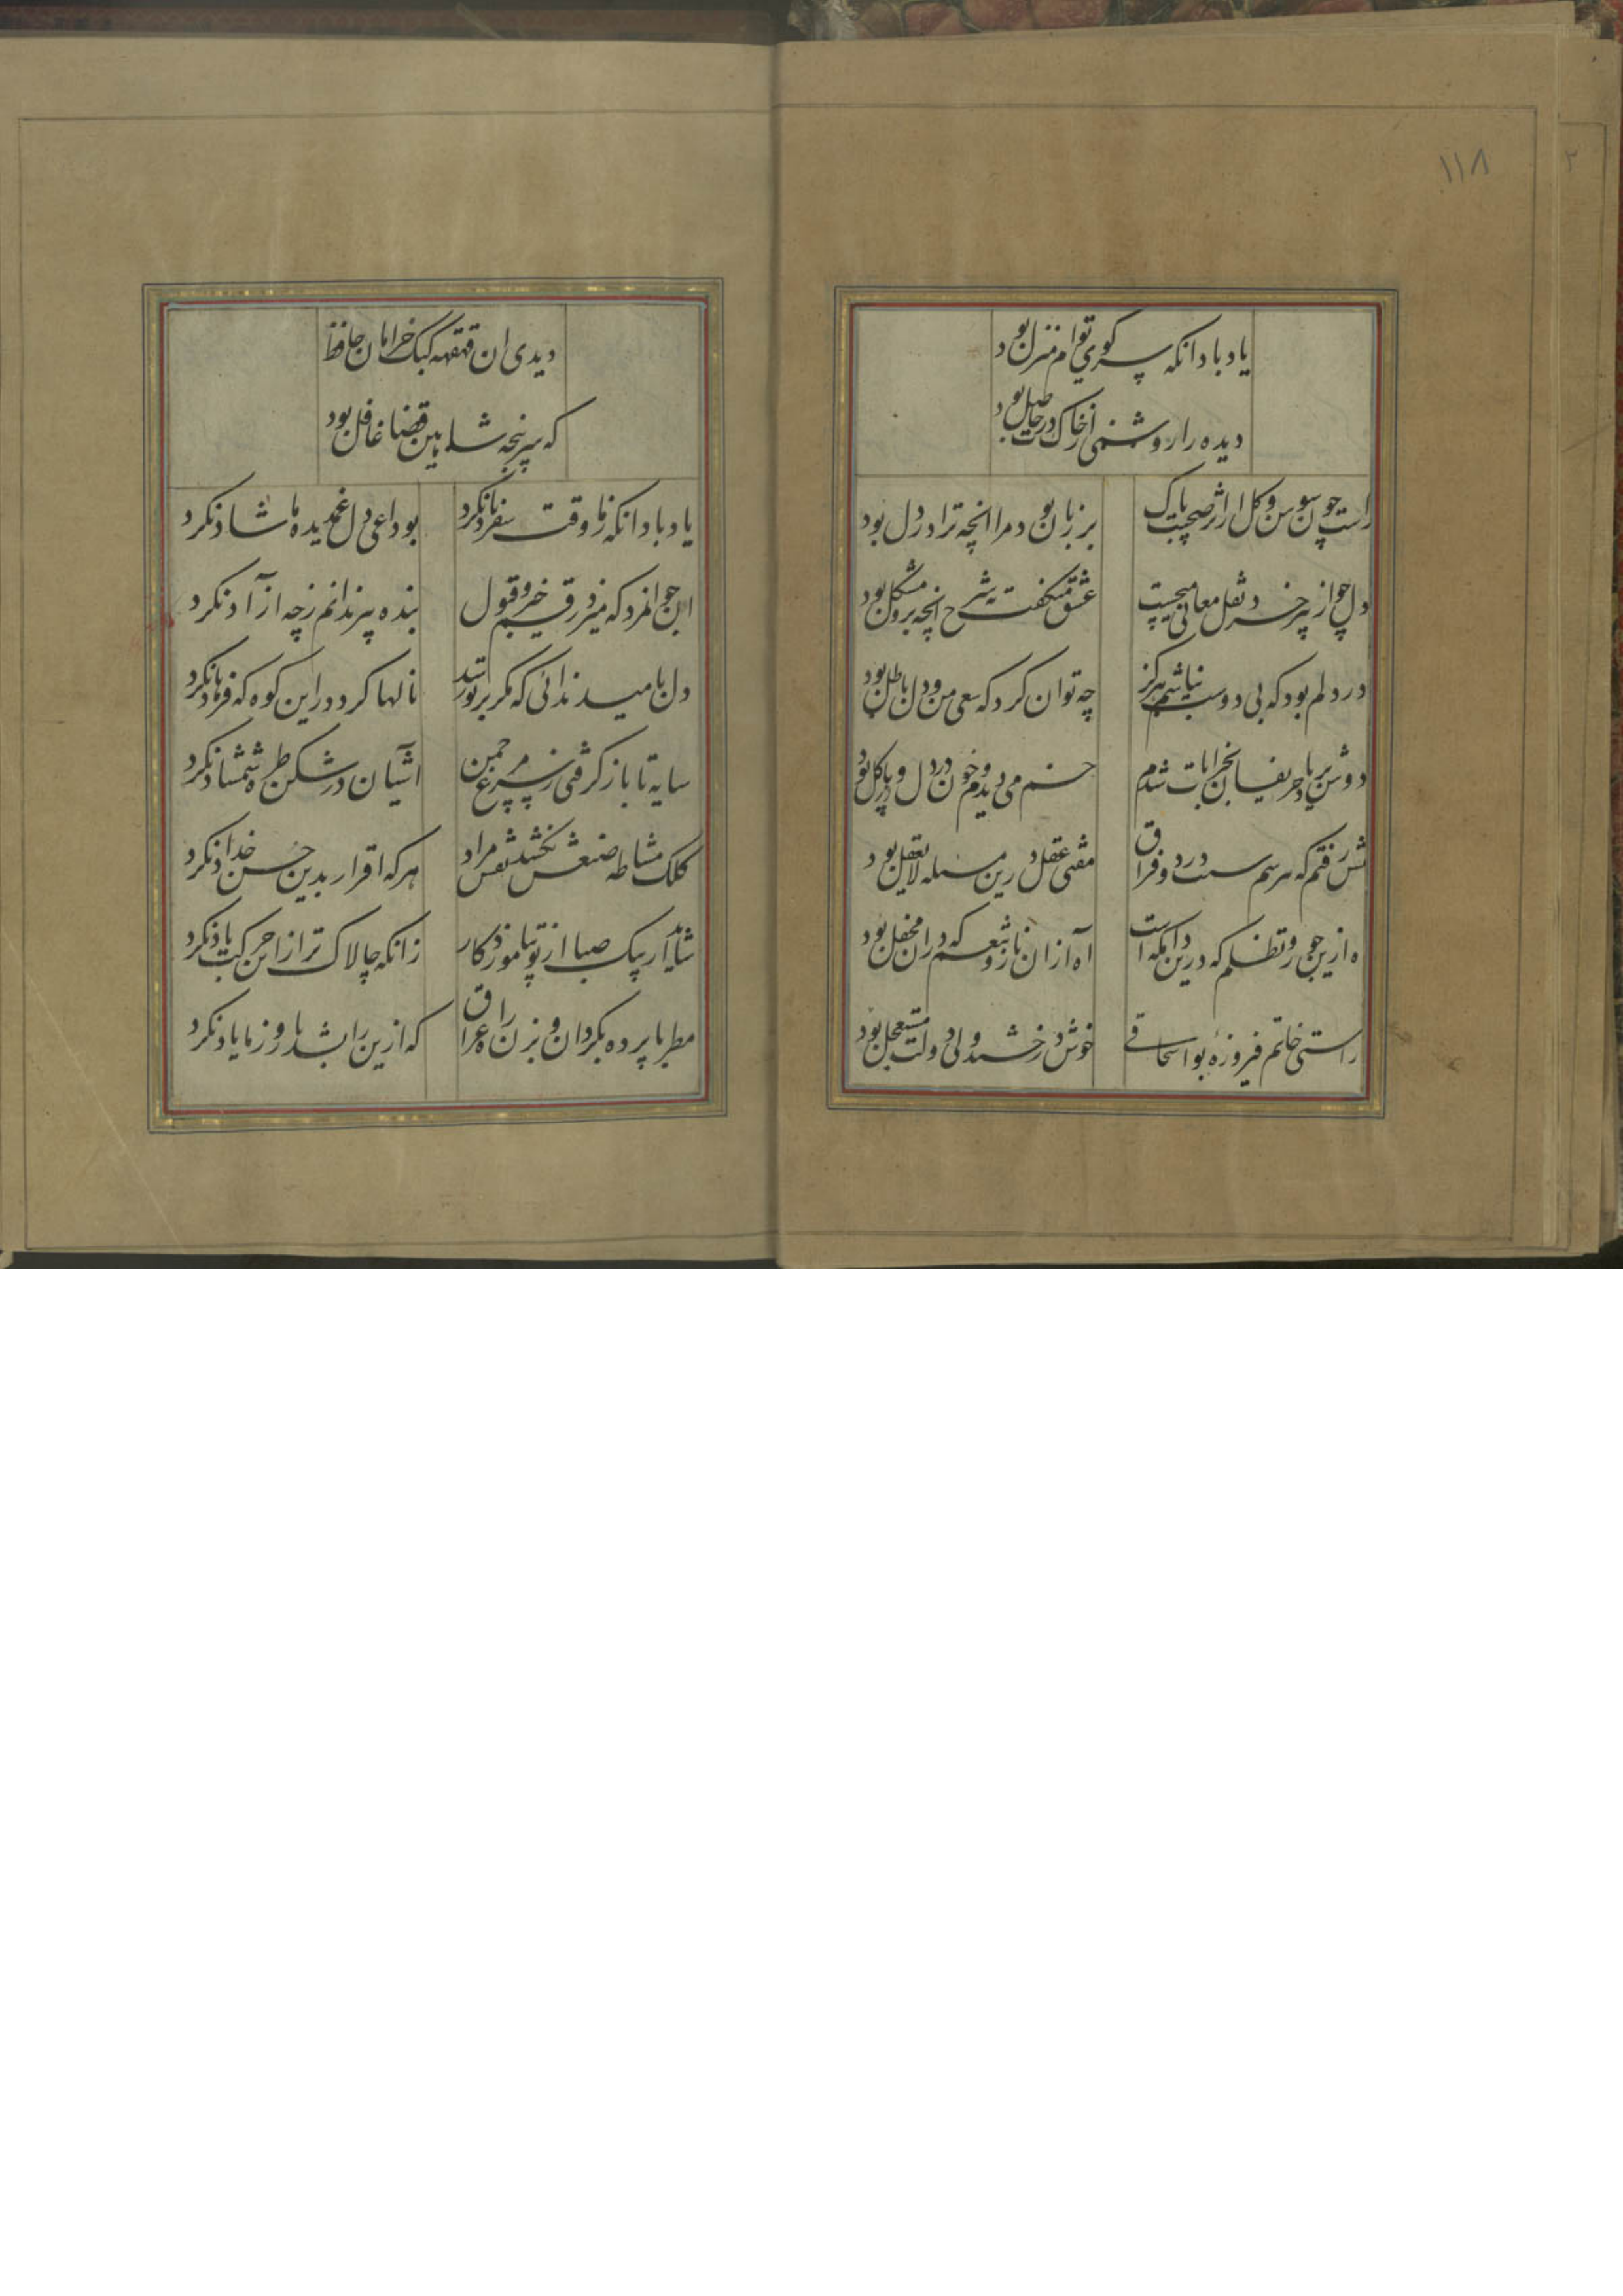 ۱۱۸
یاد باد انکه سر کوی توام منزل بود
دیده را روشنی از خاک درت حاصل بود
راست چون سوسن و کل از اثر صحبت پاک
بر زبان بود مرا انچه ترا در دل بود
دل چو از پیر خرد نقل معانی میجست
عشق میکفت بشرح انچه برو مشکل بود
در دلم بود که بی دوست نباشم هرکز
چه توان کرد که سعی من و دل باطل بود
دوش بر یاد حریفان بخرابات شدم
خم می دیدم و خون در دل و پا در کل بود
رفتم که پرسم سبب درد و فراق
مفتی عقل درین مسله لایعقل بود
اه ازین جور و تظلم که درین دامکه است
اه از ان ناز و تنعم که در ان محفل بود
راستی خاتم فیروزه بواسحاقی
خوش درخشید ولی دولت مستعجل بود
دیدی ان قهقهه کبک خرامان حافظ
که ز سرپنجه شاهین قضا غافل بود
یاد باد انکه ز ما وقت سفر یاد نکرد
بوداعی دل غمدیده ما شاد نکرد
ان جوانمرد که میزد رقم خیر و قبول
بنده پیر ندانم ز چه ازآد نکرد
دل بامید ندائی که مکر بر تو رسد
نالها کرد در این کوه که فرهاد نکرد
سایه تا باز کرفتی ز سر مرغ چمن
اشیان در شکن طره شمشاد نکرد
کلک مشاطه صنعش نکشد نقش مراد
هر که اقرار بدین حسن خداد نکرد
شاید ار پیک صبا از تو بیاموزد کار
زانکه چالاک تر از این حرکت باد نکرد
مطربا پرده بکردان و بزن راه عراق
که ازین راه بشد یار و ز ما یاد نکرد